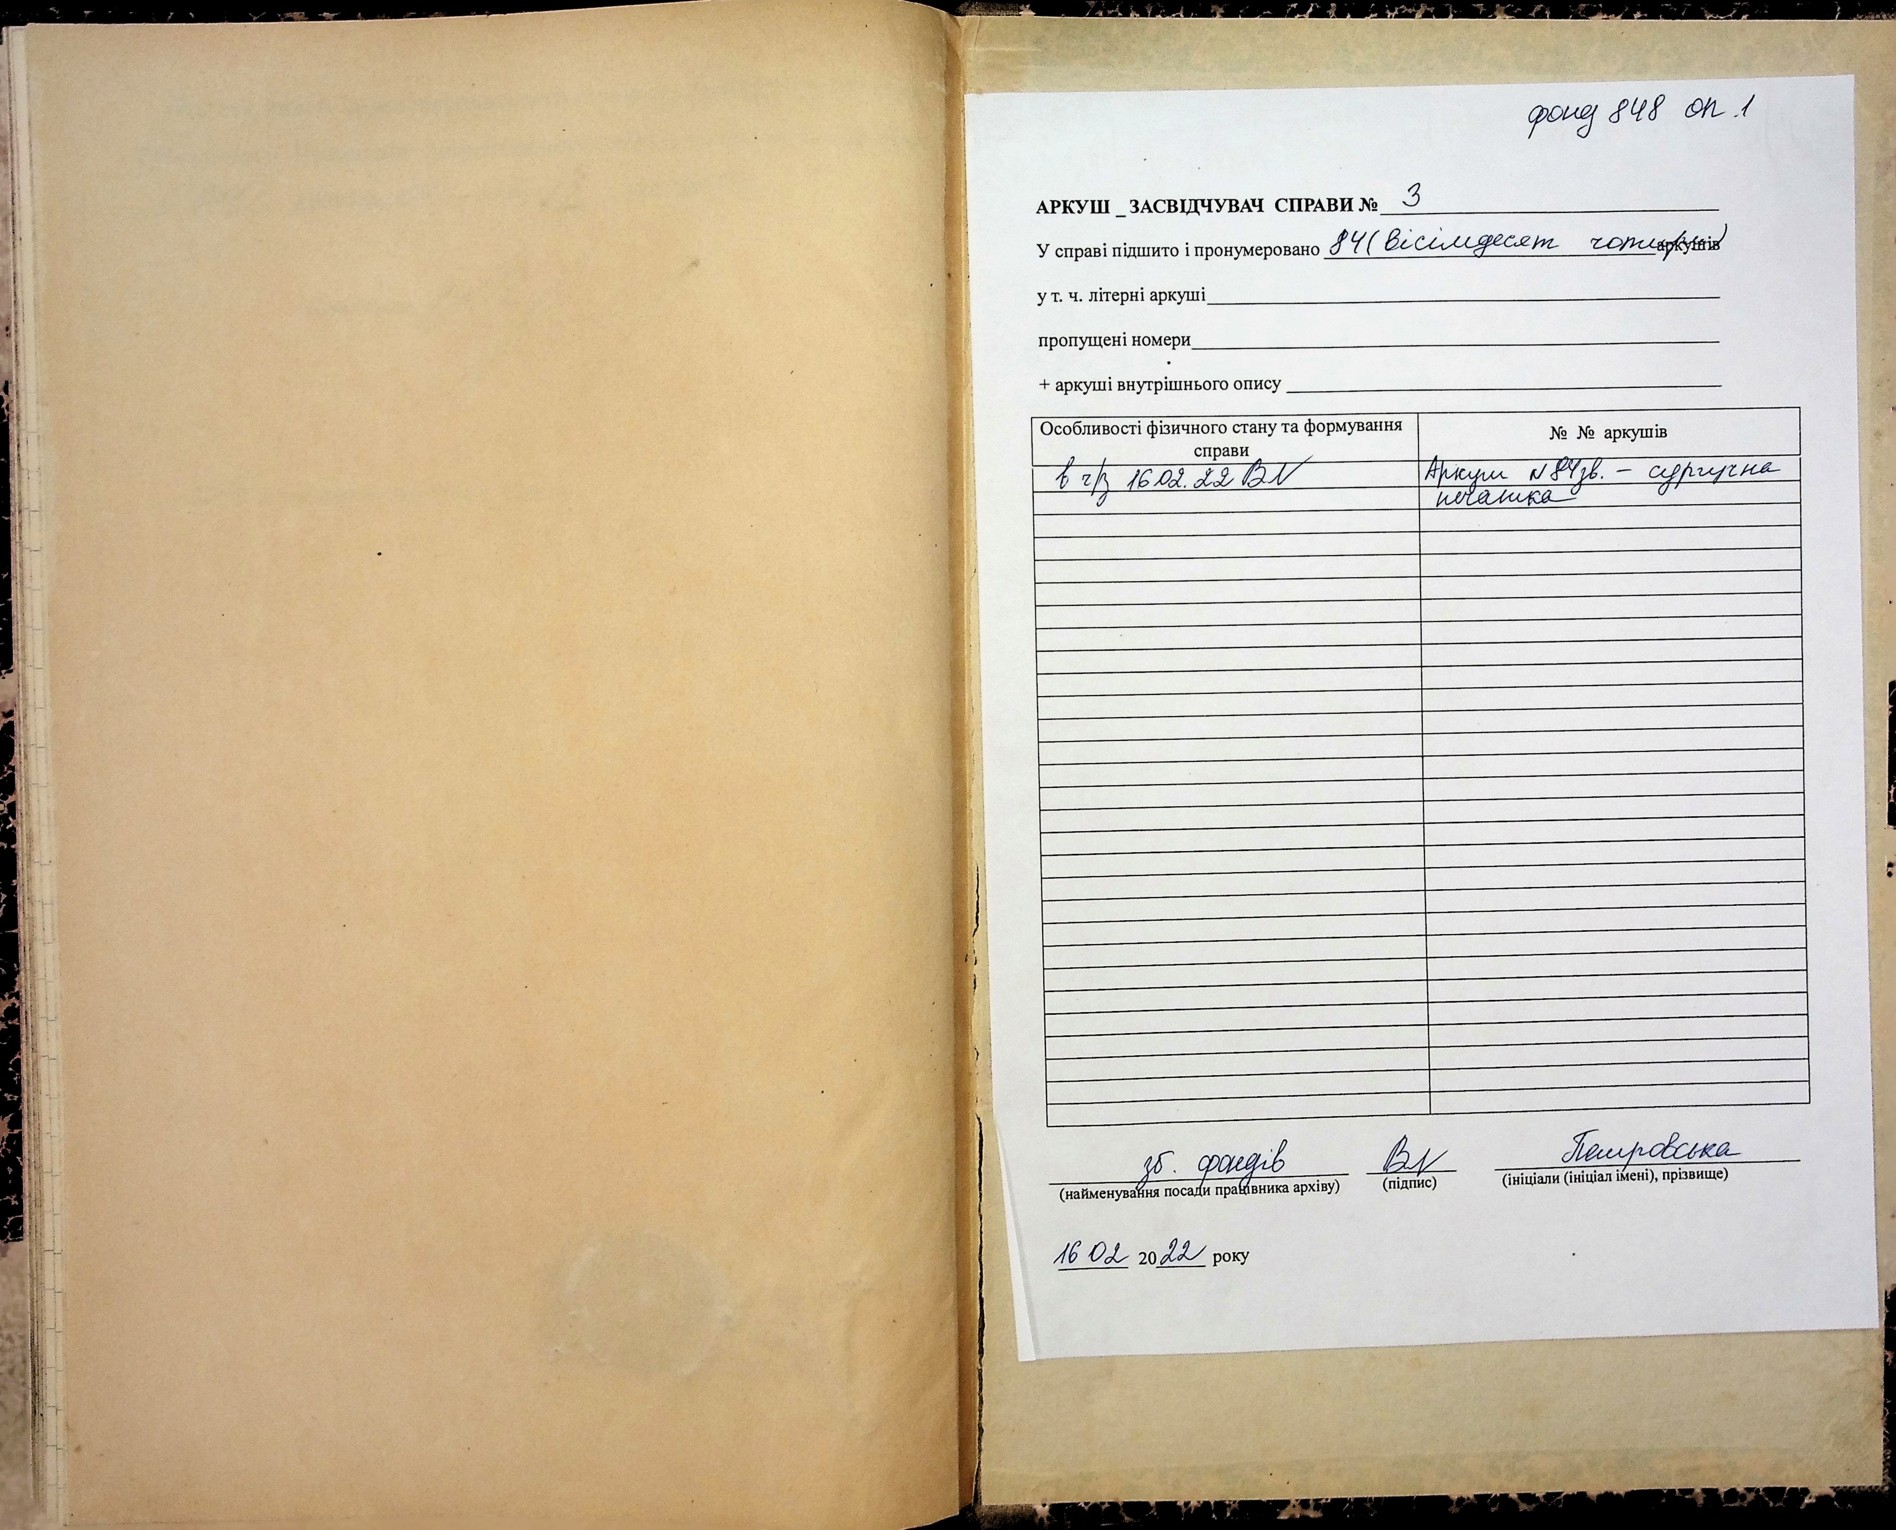 фонд 848 оп.1
АРКУШ _ ЗАСВІДЧУВАЧ СПРАВИ № 3
У справі підшито і пронумеровано 84 (вісімдесят чотири) аркушів
у т. ч. літерні аркуші
пропущені номери
+ аркуші внутрішнього опису
Особливості фізичного стану та формування справи
№ № аркушів
в ч/з 16.02.22
Аркуш №84зв. – сургучна
печатка
зб. фондів
(найменування посади працівника архіву)
(підпис)
(ініціали (ініціал імені), прізвище)
16 02 2022 року